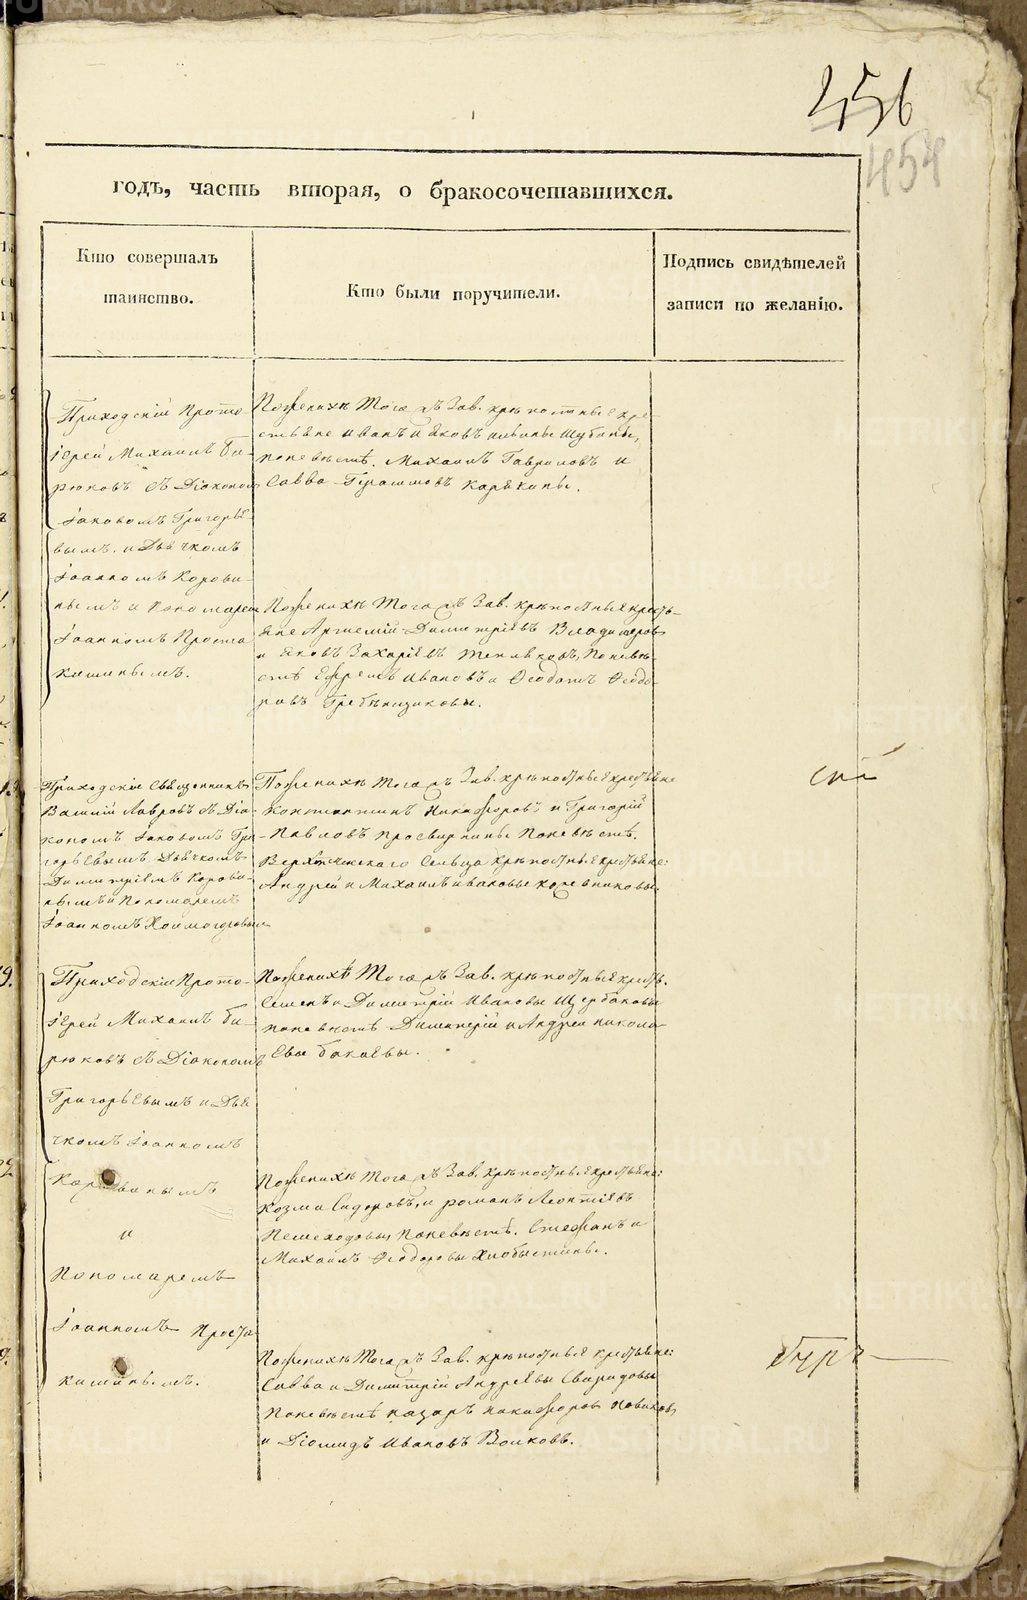 456
454
годъ, часть вторая, о бракосочетавшихся.
Кто совершалъ
таинство.
Кто были поручители.
Подпись свидѣтелей
записи по желанію.
Приходскій Прото-
іерей Михаилъ Би-
рюковъ съ Діакономъ
Іаковомъ Григорье-
вымъ, и Дьячкомъ
Іоанномъ Корови-
нымъ и Пономаремъ
Іоанномъ Проста-
кишинымъ.
По женихѣ Тогожъ Зав. крѣпостные кре-
стьяне Иванъ и Яковъ Шубины,
по невѣстѣ. Михаилъ Гавриловъ и
Савва Герасимовъ Карякины.
По женихѣ Тогожъ Зав. крѣпостные кресть-
яне Артемій Димитріевъ Владимеровъ
и Яковъ Захаріевъ Тепляковъ, По невѣ-
стѣ Ефремъ Ивановъ и Ѳеодотъ Ѳеодо-
ровъ Гребенщиковы.
Приходскій Священникъ
Василій Лавровъ съ Діа-
кономъ Іаковомъ Гри-
горьевымъ, Дьячкомъ
Димитріемъ Корови-
нымъ и Пономаремъ
Іоанномъ Холмогоровымъ
По женихѣ Тогожъ Зав. крѣпостные крестьяне
Константинъ Никифоровъ и Григорій
Павловъ Просвирнины По невѣстѣ.
Сельца крѣпостные крестьяне:
Андрей и Михаилъ Ивановы
Приходскій Прото-
іерей Михаилъ Би-
рюковъ съ Діакономъ
Григорьевымъ и Дья-
чкомъ Іоанномъ
Коровинымъ
и
Пономаремъ
Іоанномъ Проста-
кишинымъ.
По женихѣ Тогожъ Зав. крѣпостные крестья.
Семенъ и Димитрій Ивановы Щербаковы
по невѣстѣ Димитрій и Андрей Никола-
евы Бакаевы.
По женихѣ Тогожъ Зав. крѣпостные крестьяне:
Козма Сидоровъ, и Романъ Леонтіевъ
Пешеходовы По невѣстѣ. Стефанъ и
Михаилъ Ѳеодоровы Хлобыстины.
По женихѣ Тогожъ Зав. крѣпостные крестьяне:
Савва и Димитрій Андреевы Свиридовы
По невѣстѣ Назаръ Никифоровъ Новиковъ
и Діомидъ Ивановъ Волковъ.